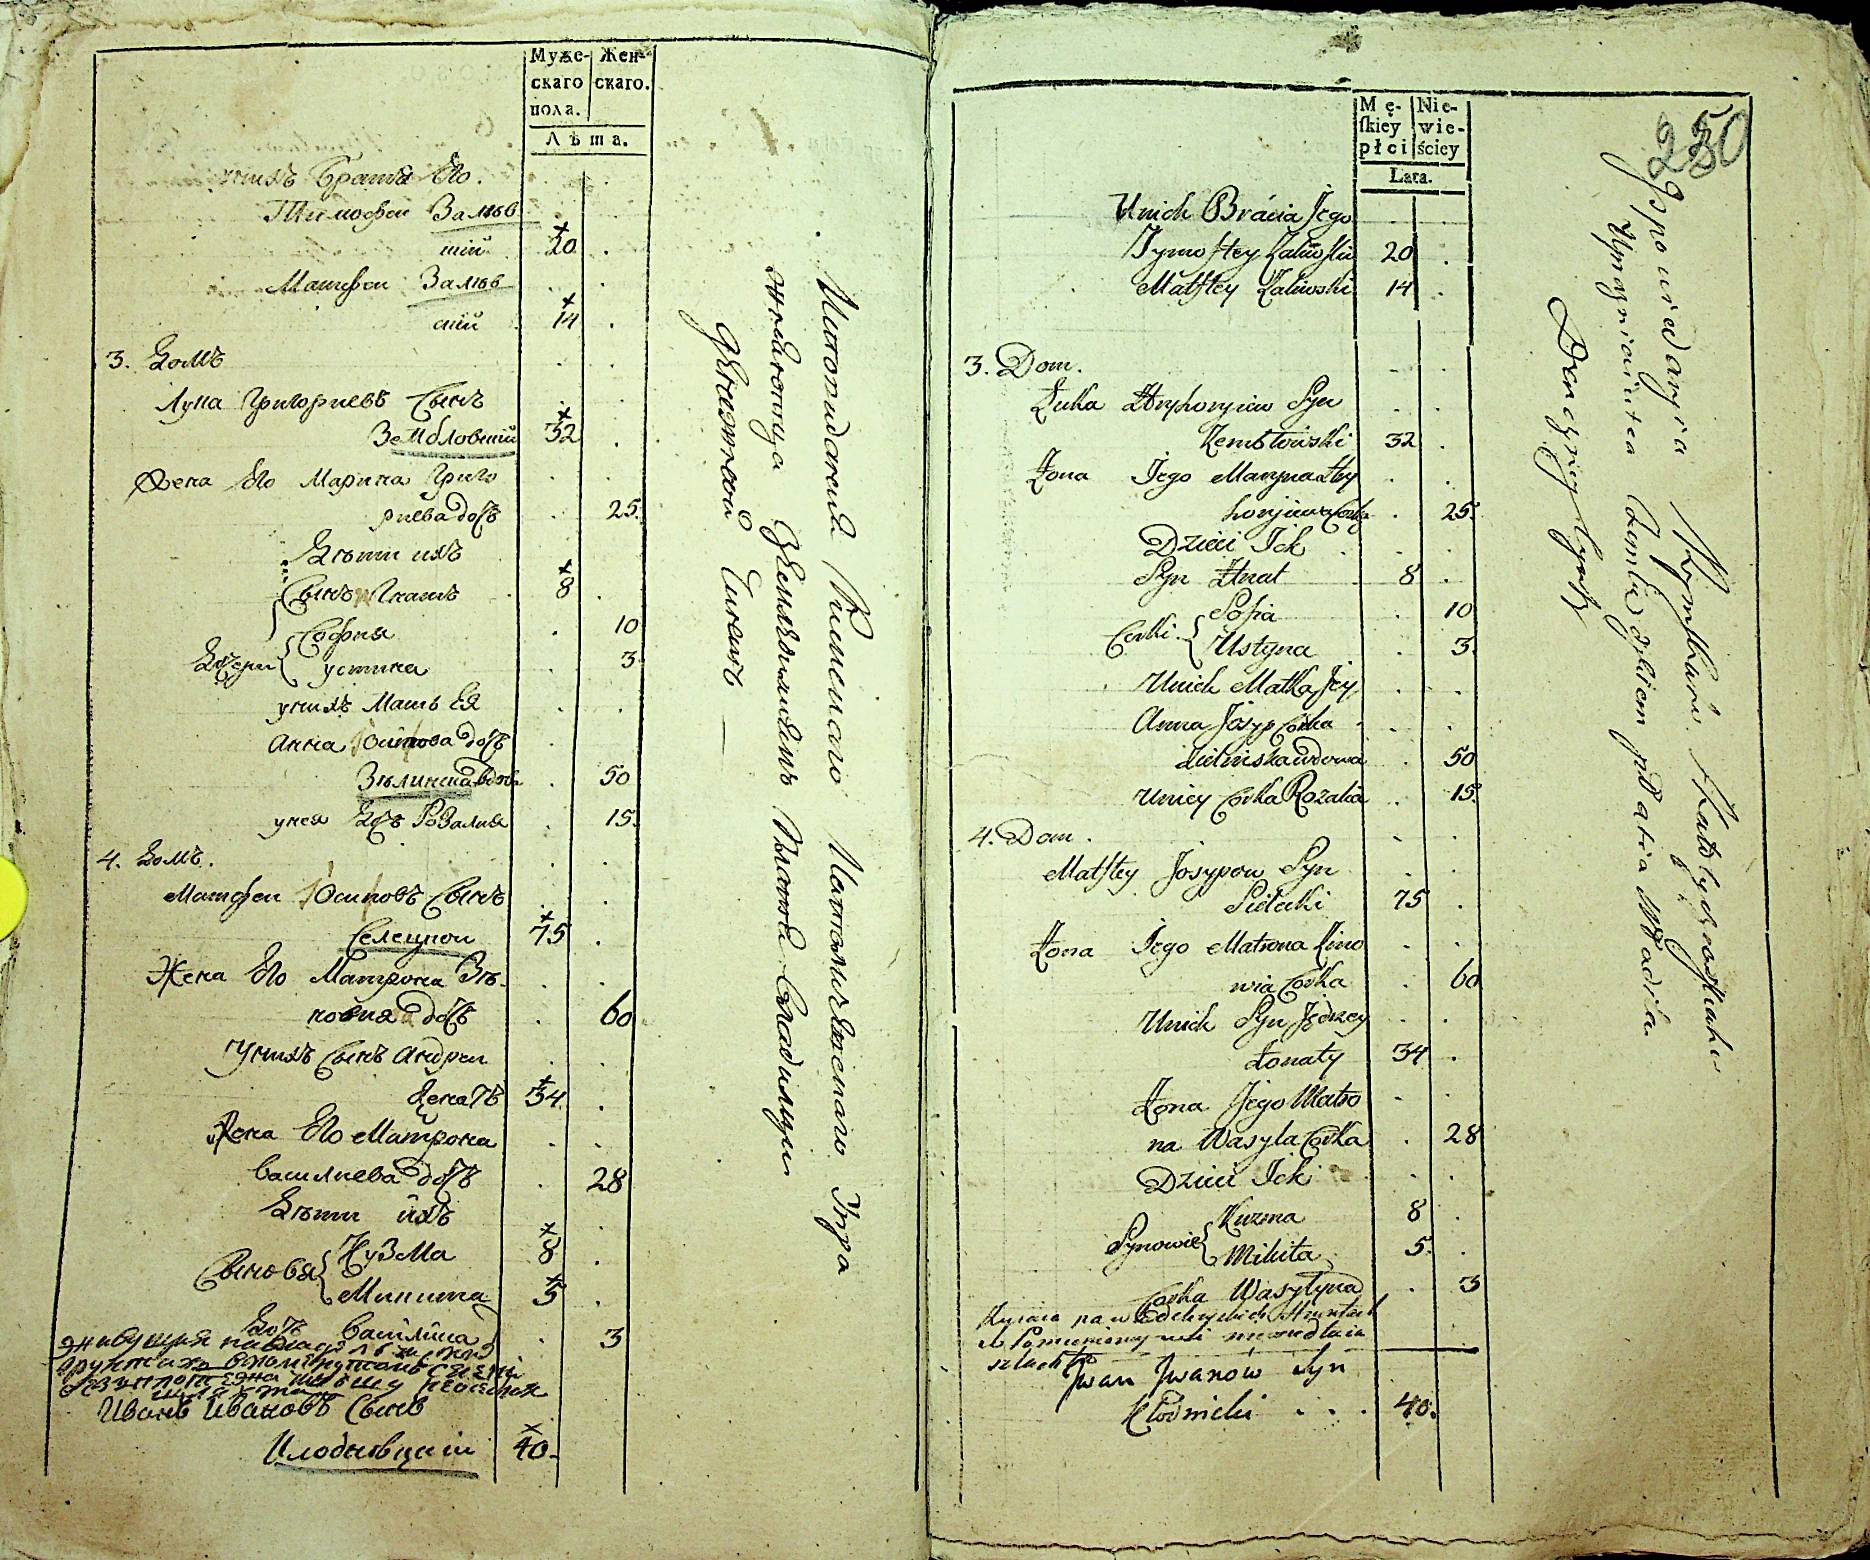 Муже-
скаго
пола.
Жен-
скаго.
Лѣта.
унихъ Братя Его.
Тимофеи Залѣв
скій 20
Матфеи Залѣв
скій 14
3. Домъ
Лука Григориевъ Сынъ
Зембловскій 32
Жена Его Марина Григо
риева дочь 25.
Дѣти ихъ
Сынъ Игнатъ 8
Дочери София 10
Устина 3.
унихъ Мать Ея
Анна Осипова дочь
Зѣлинска вдова 50
унея дочь Розалия 15.
4. Домъ.
Матфеи Осиповъ Сынъ
Селецкои 75
Жена Его Матрона Зѣ-
новия дочь 60
Унихъ Сынъ Андреи
женатъ 34.
Жена Его Матрона
Василиева дочь 28
Дѣти ихъ
Сыновья Кузма 8
Микита 5
Дочь Василина 3
Иванъ Ивановъ Сынъ
Клодницкій 40.
Исповѣданія Римскаго Католическаго Упра
жняются Земледѣлиемъ Платя Владѣлцу
Денежной Чиншъ
250
Mę-
skiey
płci
Nie-
wie-
ściey
Lata.
Unich Bracia Jego
Tymoftey Zaliwski 20
Matftey Zaliwski 14
3. Dom.
Łuka Hryhoryiow Syn
Zembłowski 32
Żona Jego Maryna Hry
horyiowa Corka 25.
Dzieci Ich
Syn Ihnat 8
Corki Sofia 10
Ustyna 3.
Unich Matka Jey
Anna Josyp Corka
Zielinska wdowa 50
Uniey Corka Rozalia 15.
4. Dom.
Matftey Josypow Syn
Sielecki 75
Żona Jego Matrona Zino
wia Corka 60
Unich Syn Jędrzey
Żonaty 34
Żona Jego Matro
na Wasyla Corka 28
Dzieci Ich
Synowie Kuzma 8
Mikita 5.
Corka Wasylyna 3
Iwan Iwanow Syn
Kłodnicki . . . 40.
Ispowiedanyia Rymskaho Katolyckoskaho
Uprazniaiutca Zemledyliem płatia Władilcu
Denezniy Czynsz